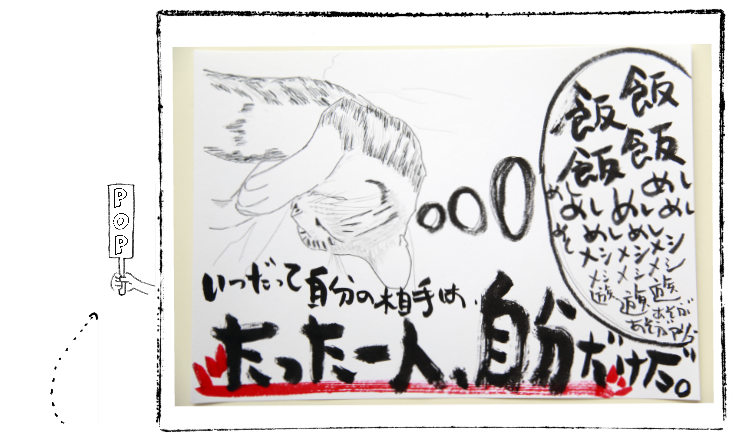 POP
飯飯
飯飯
めし めし めし めし
めし めし
メシ メシ メシ
メシ メシ メシ
遊 遊 遊
いつだって自分の相手は、
たった一人、自分だけだ。